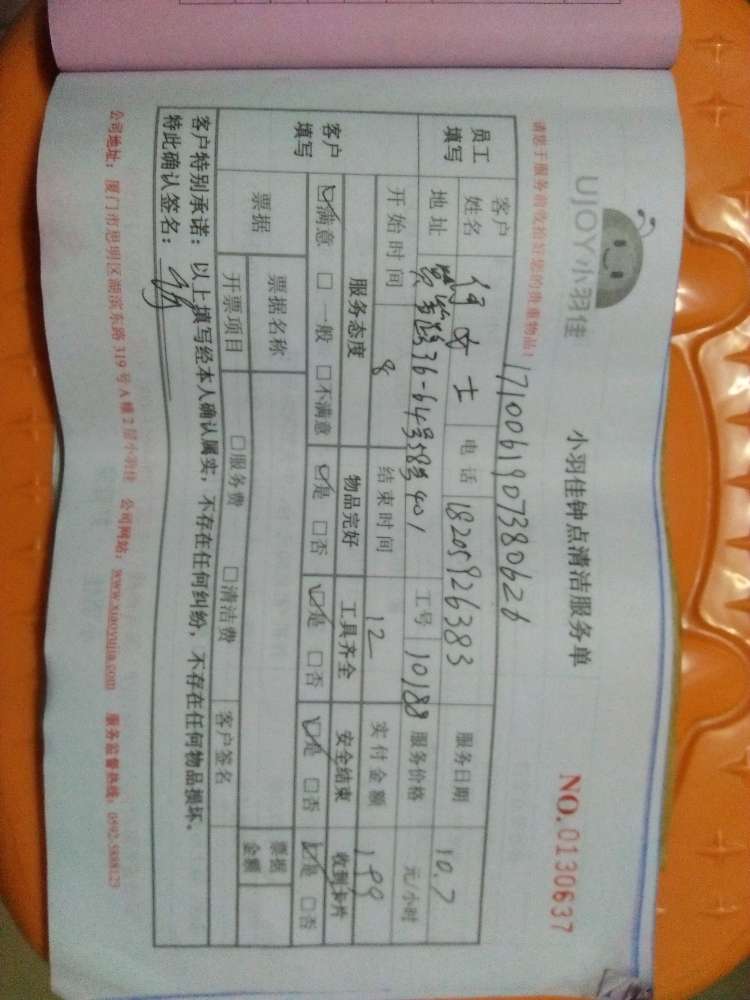 UJOY小羽佳
小羽佳钟点清洁服务单
NO.0130637
请您于服务前收拾好您的贵重物品！
1710061907380626
员工填写
客户姓名 何女士 电话 18205926383 服务日期 10.7
地址 36-64号585号401 工号 10188 服务价格 元/小时
开始时间 8 结束时间 12 实付金额 199
客户填写
服务态度 物品完好 工具齐全 安全结束 收到卡片
☑满意 □一般 □不满意 ☑是 □否 ☑是 □否 ☑是 □否 ☑是 □否
票据 票据名称 票据金额
开票项目 □服务费 □清洁费 客户签名
客户特别承诺：以上填写经本人确认属实，不存在任何纠纷，不存在任何物品损坏。
特此确认签名：
公司地址：厦门市思明区湖滨东路319号A幢2层小羽佳 公司网站：www.xiaoyujia.com 服务监督热线：0592-5888123